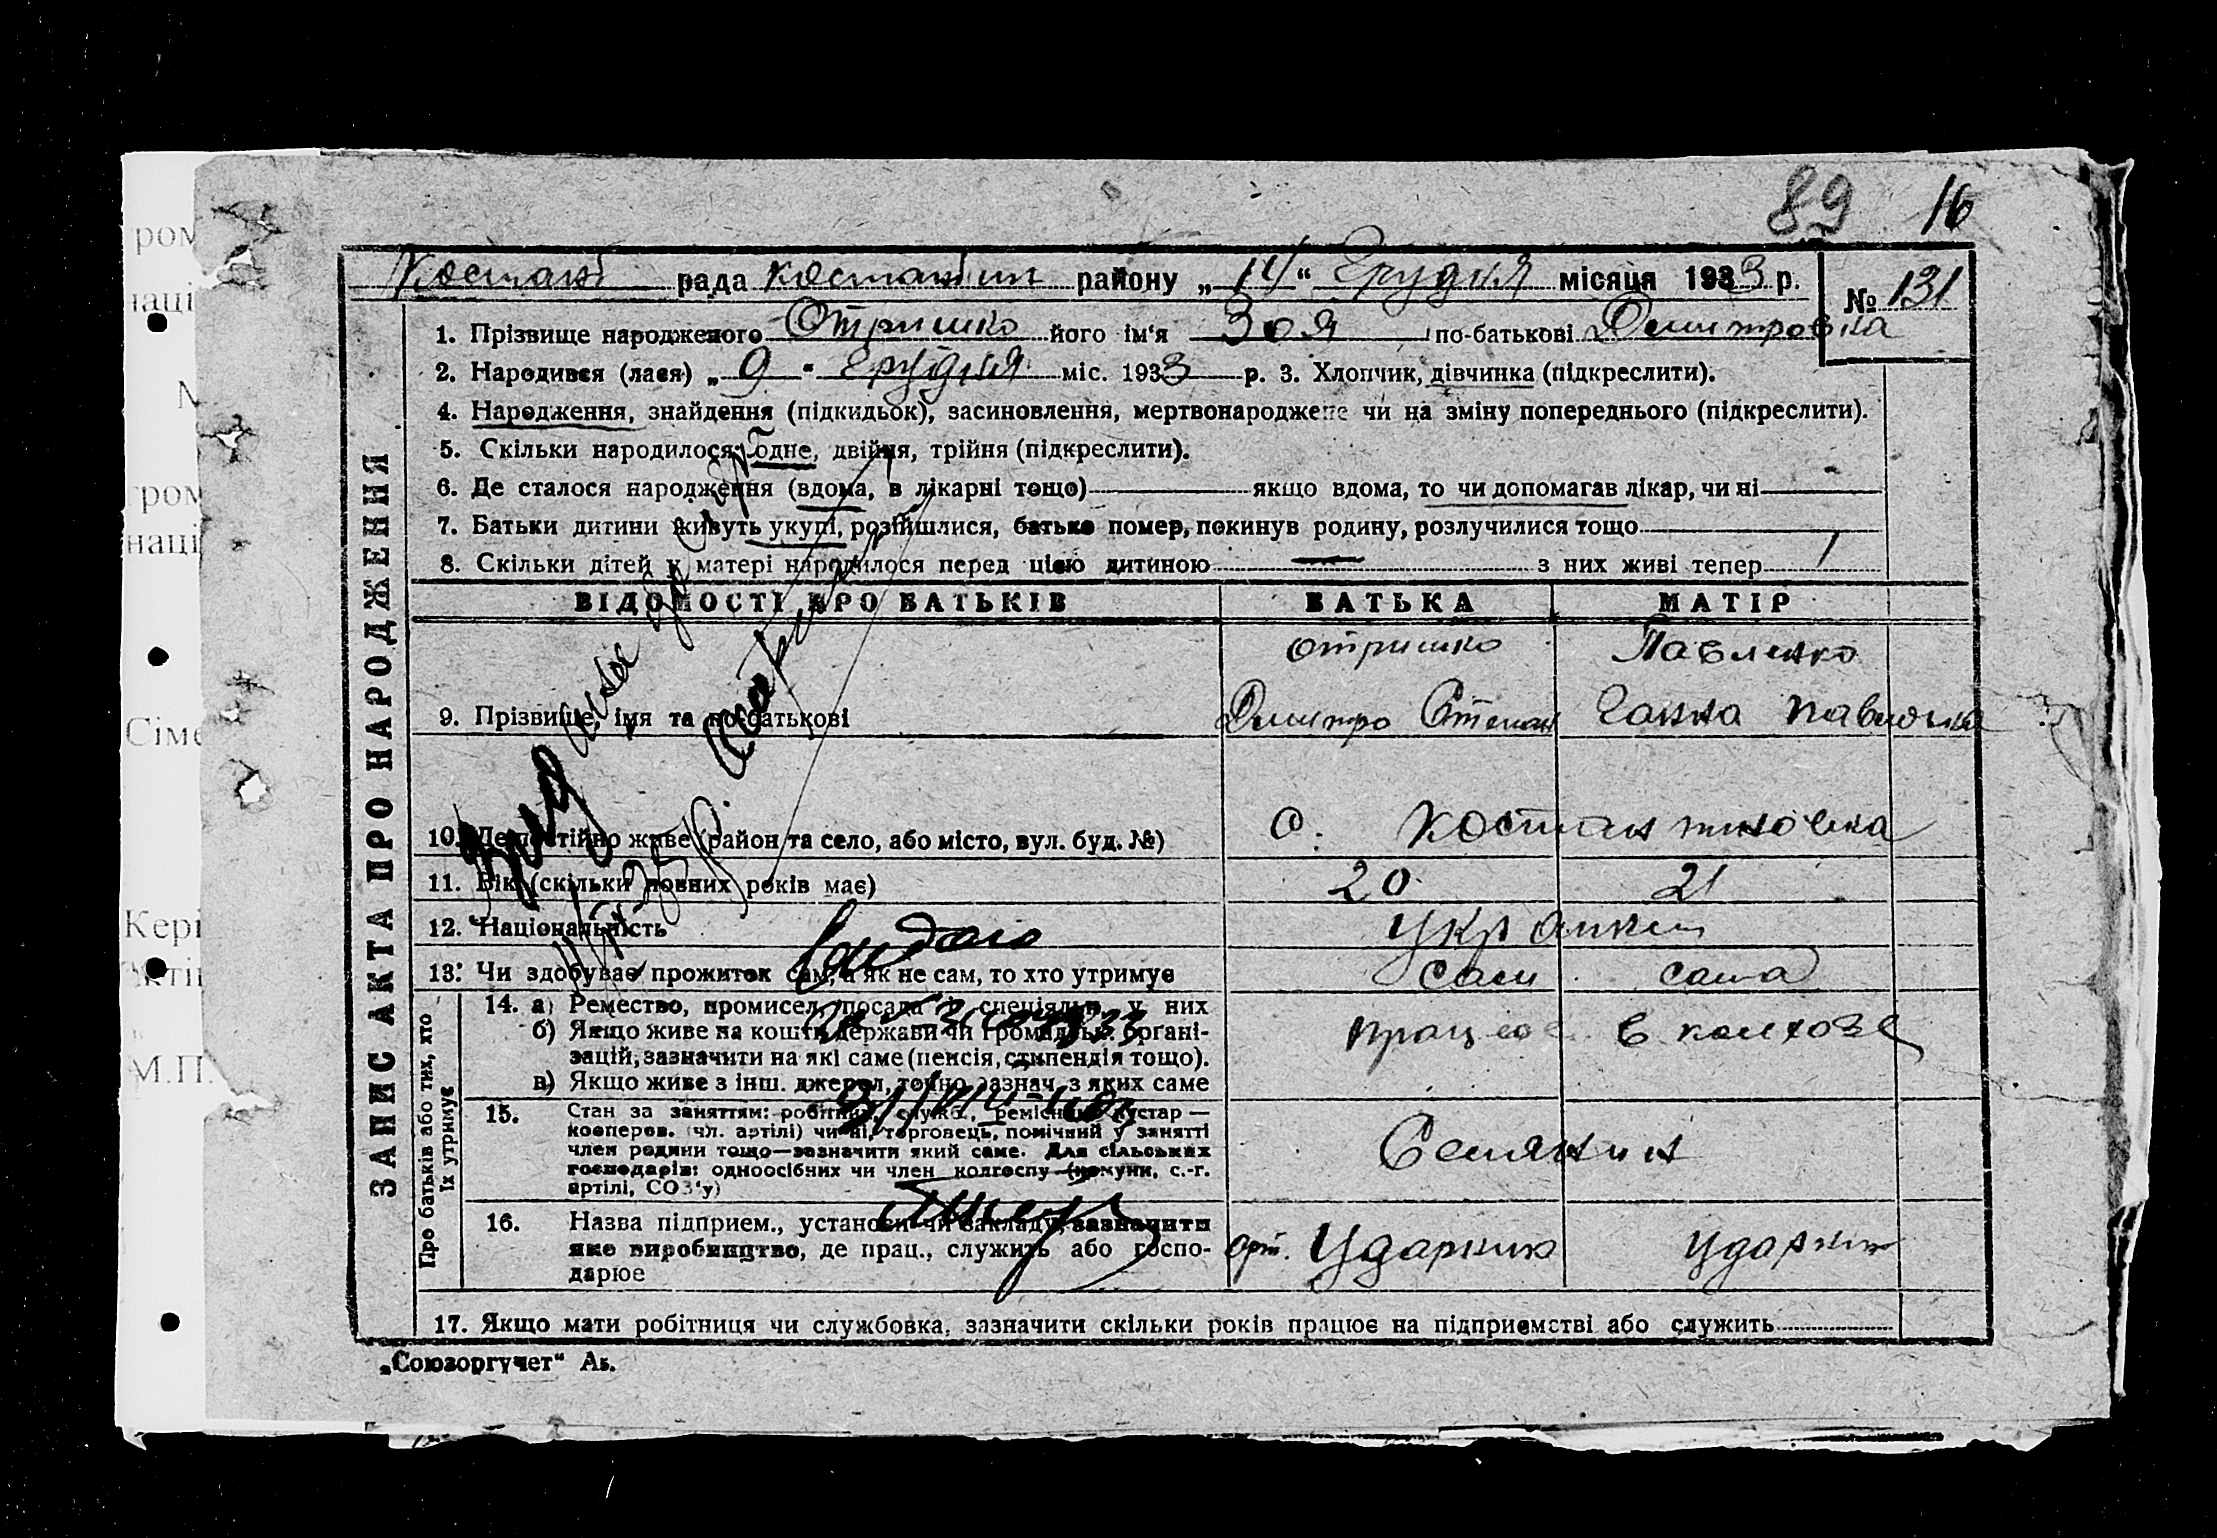 89 16
Костант рада Костантин району „14“ Грудня місяця 1933 р. № 131
1. Прізвище народженого Отришко його ім'я Зоя по-батькові Дмитровка
2. Народився (лася) „9“ Грудня міс. 1933 р. 3. Хлопчик, дівчинка (підкреслити).
4. Народження, знайдення (підкидьок), засиновлення, мертвонароджене чи на зміну попереднього (підкреслити).
5. Скільки народилося: одне, двійня, трійня (підкреслити).
6. Де сталося народження (вдома, в лікарні тощо) — якщо вдома, то чи допомагав лікар, чи ні —
7. Батьки дитини живуть укупі, розійшлися, батько помер, покинув родину, розлучилися тощо
8. Скільки дітей у матері народилося перед цією дитиною — з них живі тепер /
ЗАПИС АКТА ПРО НАРОДЖЕННЯ
ВІДОМОСТІ ПРО БАТЬКІВ БАТЬКА МАТІР
Отришко Павленко
9. Прізвище, імя та по-батькові Дмитро Степан Ганна Павловка
10. Де постійно живе (район та село, або місто, вул. буд. №) С. Костантиновка
11. Вік (скільки повних років має) 20 21
12. Національність
13. Чи здобуває прожиток сам, а як не сам, то хто утримує сам сама
Про батьків або тих, хто їх утримує
14. а) Ремество, промисел, посада і спеціяльн. у них
б) Якщо живе на кошти держави чи громадськ. органі-
зацій, зазначити на які саме (пенсія, стипендія тощо).
в) Якщо живе з інш. джерел, точно зазнач. з яких саме
працює в колхозе
15. Стан за заняттям: робітник, службо., ремісник, кустар—
кооперов. (чл. артілі) чи ні, торговець, помічний у занятті
член родини тощо—зазначити який саме. Для сільських
господарів: одноосібних чи член колгоспу (комуни, с.-г.
артілі, СОЗ'у)
Селянин
16. Назва підприєм., установи чи закладу, зазначити
яке виробництво, де прац., служить або госпо-
дарює
арт. Ударник Ударник
17. Якщо мати робітниця чи службовка, зазначити скільки років працює на підприємстві або служить
„Союзоргучет“
ром
наці
М
гром
наці
Сіме
Кері
М.П.